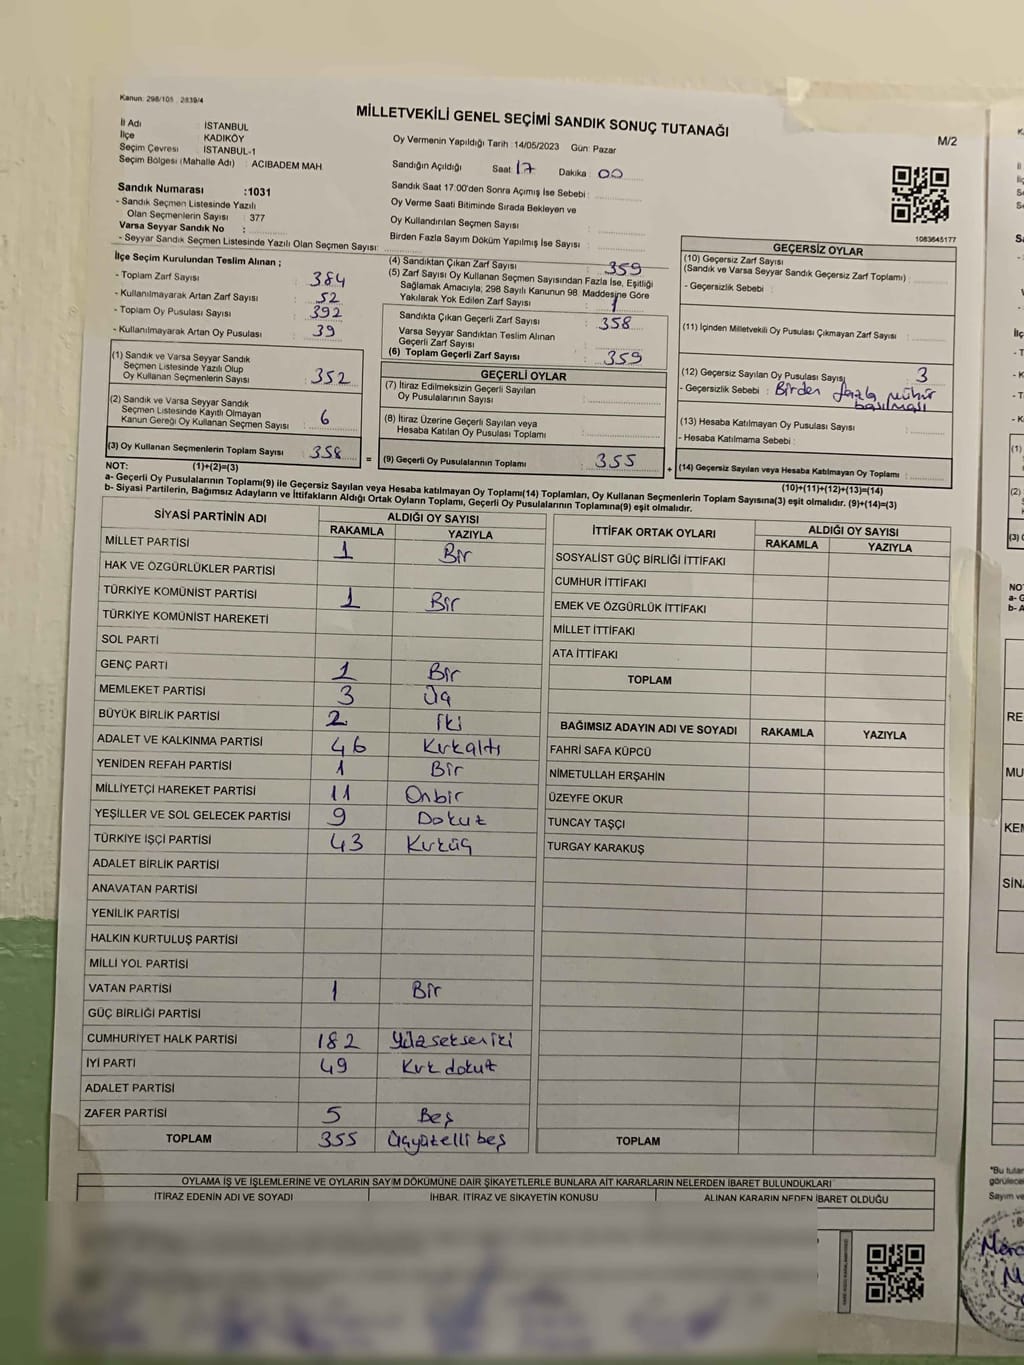 Kanun: 298/105 , 2839/4
MİLLETVEKİLİ GENEL SEÇİMİ SANDIK SONUÇ TUTANAĞI
M/2
İl Adı : İSTANBUL
İlçe : KADIKÖY
Seçim Çevresi : İSTANBUL-1
Seçim Bölgesi (Mahalle Adı) : ACIBADEM MAH.
Oy Vermenin Yapıldığı Tarih :14/05/2023 Gün: Pazar
Sandığın Açıldığı Saat: 17 Dakika: 00
Sandık Saat 17:00'den Sonra Açımış İse Sebebi :
Oy Verme Saati Bitiminde Sırada Bekleyen ve
Oy Kullandırılan Seçmen Sayısı :
Birden Fazla Sayım Döküm Yapılmış İse Sayısı :
Sandık Numarası :1031
- Sandık Seçmen Listesinde Yazılı
Olan Seçmenlerin Sayısı : 377
Varsa Seyyar Sandık No :
- Seyyar Sandık Seçmen Listesinde Yazılı Olan Seçmen Sayısı:
1083645177
İlçe Seçim Kurulundan Teslim Alınan ;
- Toplam Zarf Sayısı : 384
- Kullanılmayarak Artan Zarf Sayısı : 52
- Toplam Oy Pusulası Sayısı : 392
- Kullanılmayarak Artan Oy Pusulası : 39
(1) Sandık ve Varsa Seyyar Sandık
Seçmen Listesinde Yazılı Olup
Oy Kullanan Seçmenlerin Sayısı : 352
(2) Sandık ve Varsa Seyyar Sandık
Seçmen Listesinde Kayıtlı Olmayan
Kanun Gereği Oy Kullanan Seçmen Sayısı : 6
(3) Oy Kullanan Seçmenlerin Toplam Sayısı : 358
(1)+(2)=(3)
(4) Sandıktan Çıkan Zarf Sayısı : 359
(5) Zarf Sayısı Oy Kullanan Seçmen Sayısından Fazla İse, Eşitliği
Sağlamak Amacıyla; 298 Sayılı Kanunun 98. Maddesine Göre
Yakılarak Yok Edilen Zarf Sayısı : 1
Sandıkta Çıkan Geçerli Zarf Sayısı : 358
Varsa Seyyar Sandıktan Teslim Alınan
Geçerli Zarf Sayısı :
(6) Toplam Geçerli Zarf Sayısı : 359
GEÇERLİ OYLAR
(7) İtiraz Edilmeksizin Geçerli Sayılan
Oy Pusulalarının Sayısı :
(8) İtiraz Üzerine Geçerli Sayılan veya
Hesaba Katılan Oy Pusulası Toplamı :
= (9) Geçerli Oy Pusulalarının Toplamı : 355 +
GEÇERSİZ OYLAR
(10) Geçersiz Zarf Sayısı
(Sandık ve Varsa Seyyar Sandık Geçersiz Zarf Toplamı) :
- Geçersizlik Sebebi :
(11) İçinden Milletvekili Oy Pusulası Çıkmayan Zarf Sayısı :
(12) Geçersiz Sayılan Oy Pusulası Sayısı : 3
- Geçersizlik Sebebi : Birden fazla mühür
basılması
(13) Hesaba Katılmayan Oy Pusulası Sayısı :
- Hesaba Katılmama Sebebi :
(14) Geçersiz Sayılan veya Hesaba Katılmayan Oy Toplamı :
(10)+(11)+(12)+(13)=(14)
NOT:
a- Geçerli Oy Pusulalarının Toplamı(9) ile Geçersiz Sayılan veya Hesaba katılmayan Oy Toplamı(14) Toplamları, Oy Kullanan Seçmenlerin Toplam Sayısına(3) eşit olmalıdır. (9)+(14)=(3)
b- Siyasi Partilerin, Bağımsız Adayların ve İttifakların Aldığı Ortak Oyların Toplamı, Geçerli Oy Pusulalarının Toplamına(9) eşit olmalıdır.
SİYASİ PARTİNİN ADI ALDIĞI OY SAYISI
RAKAMLA YAZIYLA
MİLLET PARTİSİ 1 Bir
HAK VE ÖZGÜRLÜKLER PARTİSİ
TÜRKİYE KOMÜNİST PARTİSİ 1 Bir
TÜRKİYE KOMÜNİST HAREKETİ
SOL PARTİ
GENÇ PARTİ 1 Bir
MEMLEKET PARTİSİ 3 Üç
BÜYÜK BİRLİK PARTİSİ 2 İki
ADALET VE KALKINMA PARTİSİ 46 Kırkaltı
YENİDEN REFAH PARTİSİ 1 Bir
MİLLİYETÇİ HAREKET PARTİSİ 11 Onbir
YEŞİLLER VE SOL GELECEK PARTİSİ 9 Dokuz
TÜRKİYE İŞÇİ PARTİSİ 43 Kırküç
ADALET BİRLİK PARTİSİ
ANAVATAN PARTİSİ
YENİLİK PARTİSİ
HALKIN KURTULUŞ PARTİSİ
MİLLİ YOL PARTİSİ
VATAN PARTİSİ 1 Bir
GÜÇ BİRLİĞİ PARTİSİ
CUMHURİYET HALK PARTİSİ 182 Yüzsekseniki
İYİ PARTİ 49 Kırkdokuz
ADALET PARTİSİ
ZAFER PARTİSİ 5 Beş
TOPLAM 355 Üçyüzelli beş
İTTİFAK ORTAK OYLARI ALDIĞI OY SAYISI
RAKAMLA YAZIYLA
SOSYALİST GÜÇ BİRLİĞİ İTTİFAKI
CUMHUR İTTİFAKI
EMEK VE ÖZGÜRLÜK İTTİFAKI
MİLLET İTTİFAKI
ATA İTTİFAKI
TOPLAM
BAĞIMSIZ ADAYIN ADI VE SOYADI RAKAMLA YAZIYLA
FAHRİ SAFA KÜPCÜ
NİMETULLAH ERŞAHİN
ÜZEYFE OKUR
TUNCAY TAŞÇI
TURGAY KARAKUŞ
TOPLAM
OYLAMA İŞ VE İŞLEMLERİNE VE OYLARIN SAYIM DÖKÜMÜNE DAİR ŞİKAYETLERLE BUNLARA AİT KARARLARIN NELERDEN İBARET BULUNDUKLARI
İTİRAZ EDENİN ADI VE SOYADI İHBAR, İTİRAZ VE ŞİKAYETİN KONUSU ALINAN KARARIN NEDEN İBARET OLDUĞU